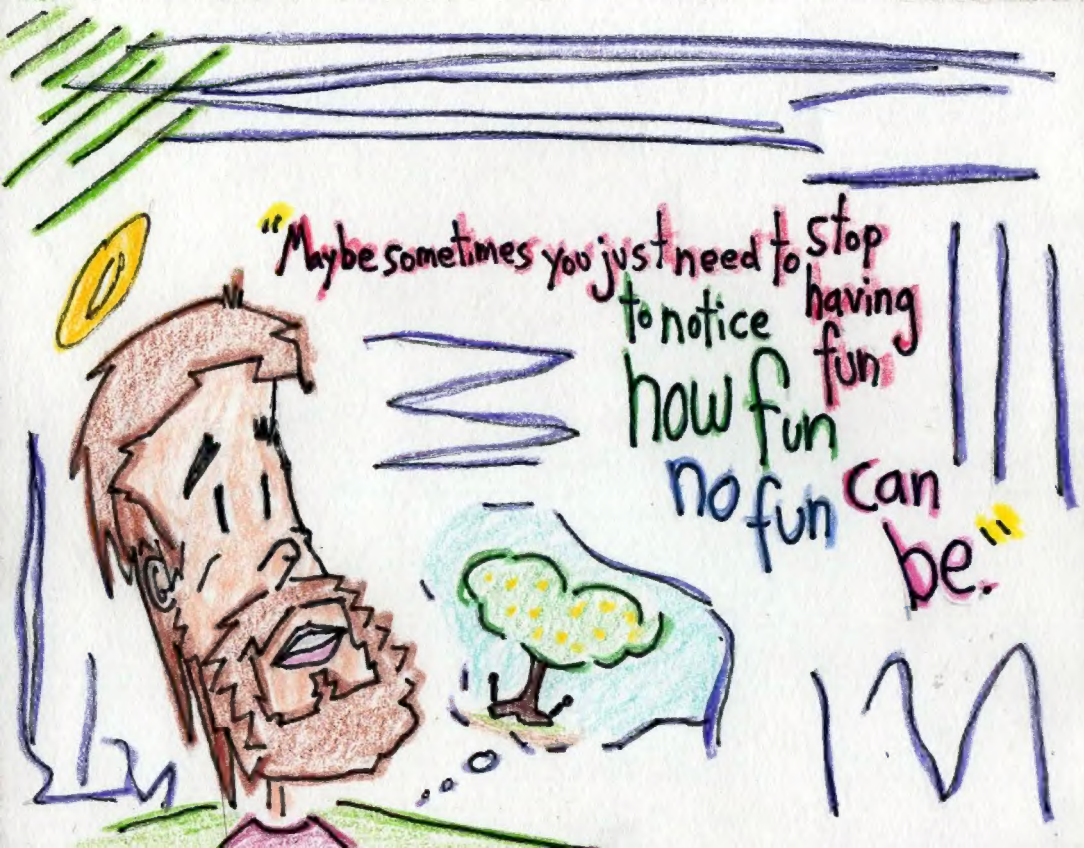 "Maybe sometimes you just need to stop
having
fun
to notice
how fun
no fun can
be."